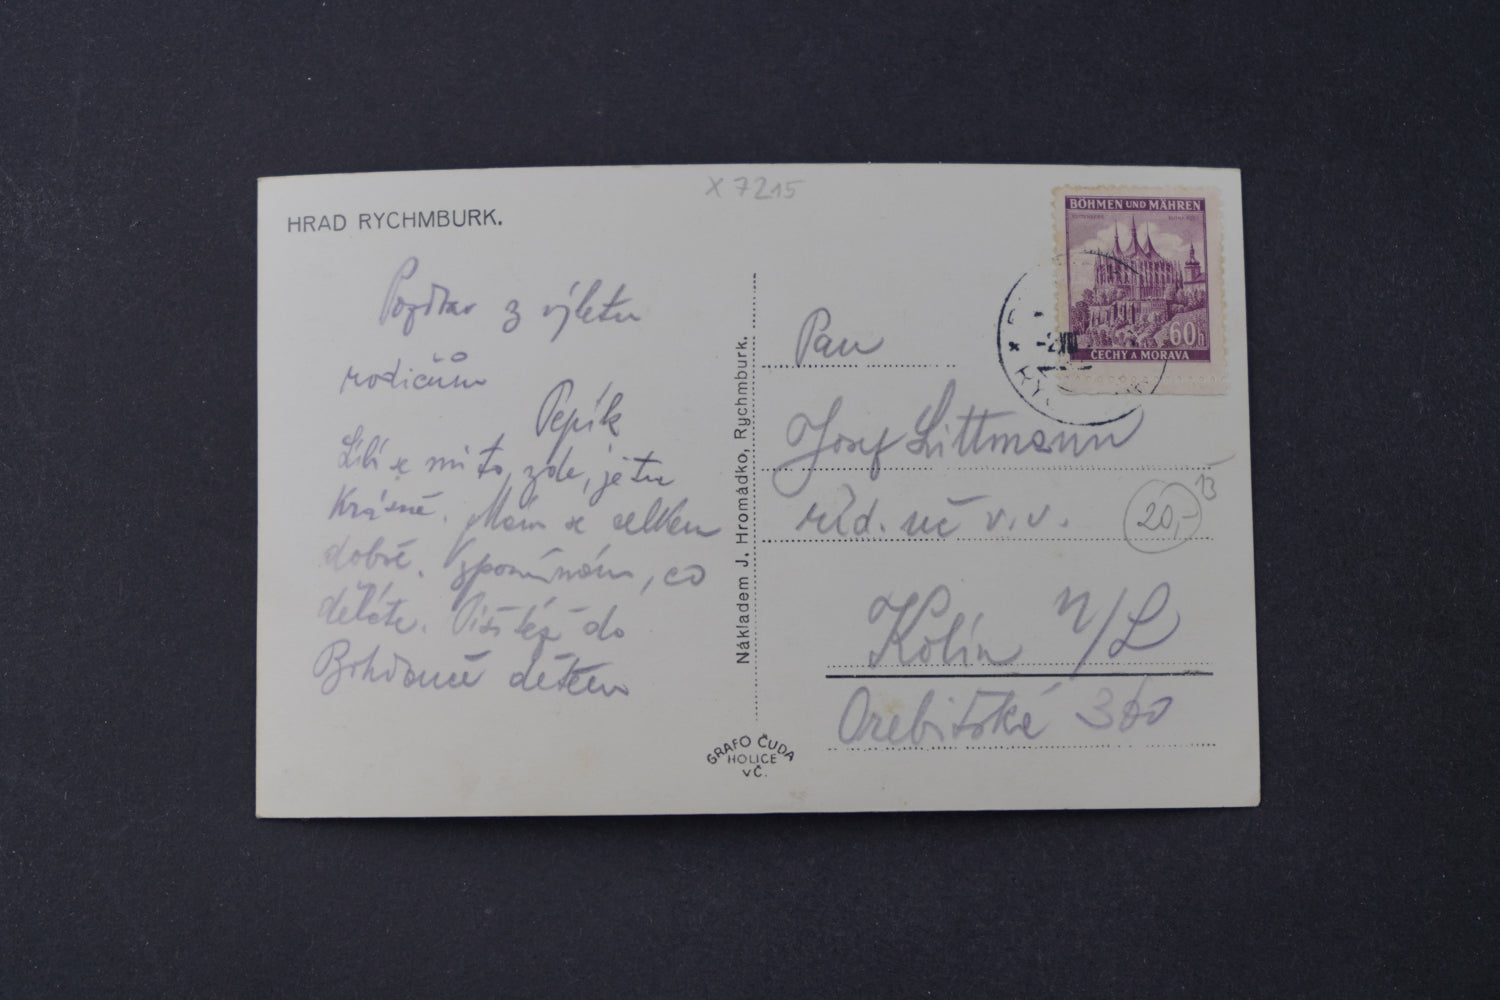 x 7215
HRAD RYCHMBURK.
Pozdrav z výletu
rodičům
Pepík
Líbí se mi to, zde, je tu
krásně. Mám se celkem
dobře. Vzpomínám, co
děláte. Píši též do
Bohdanče dětem
Nákladem J. Hromádko, Rychmburk.
GRAFO ČUDA
HOLICE
VČ.
BÖHMEN UND MÄHREN
60h
ČECHY A MORAVA
Pan
Josef Littmann
říd. uč v.v.
20,-
13
Kolín n/L
Orebitské 360